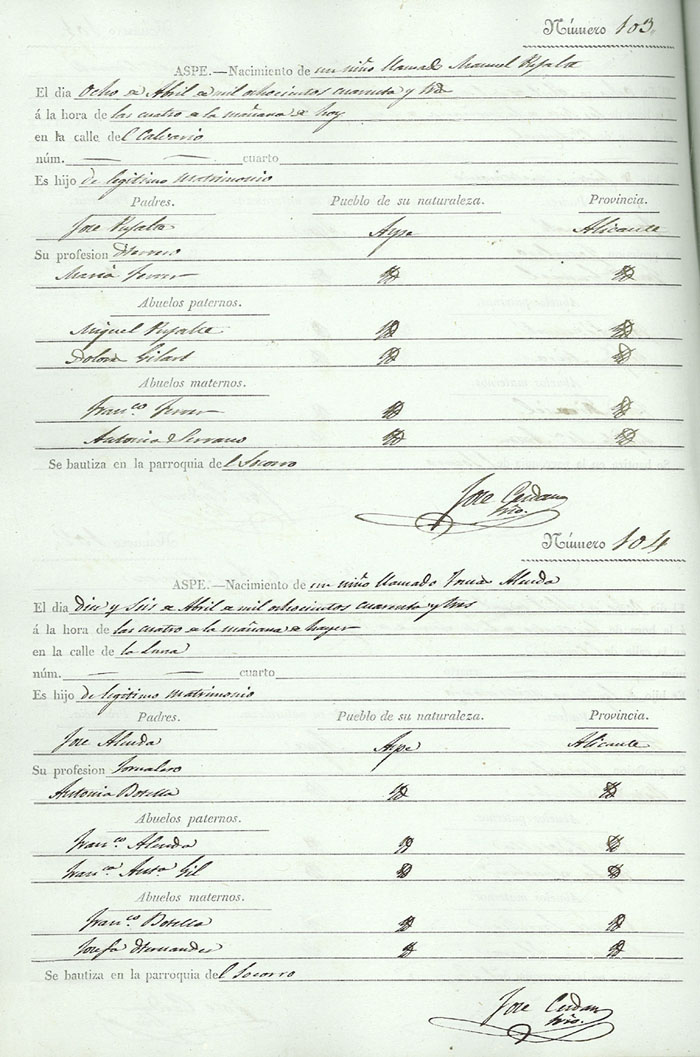 Número 103.
ASPE.—Nacimiento de un niño llamado Manuel
El dia Ocho de Abril de mil ochocientos cuarenta y tres
á la hora de las cuatro de la mañana de hoy
en la calle del Calvario
núm. — — cuarto
Es hijo de legitimo matrimonio
Padres. Pueblo de su naturaleza. Provincia.
Jose Aspe Alicante
Su profesion
Maria Ferrer Yd Yd
Abuelos paternos.
Miguel Yd Yd
Dolores Gilart Yd Yd
Abuelos maternos.
Franco Ferrer Yd Yd
Antonia Serrano Yd Yd
Se bautiza en la parroquia del Socorro
Jose Cerdan
Número 104
ASPE.—Nacimiento de un niño llamado Tomas Almda
El dia Diez y Seis de Abril de mil ochocientos cuarenta y tres
á la hora de las cuatro de la mañana de hayer
en la calle de la Luna
núm. — — cuarto
Es hijo de legitimo matrimonio
Padres. Pueblo de su naturaleza. Provincia.
Jose Aspe Alicante
Su profesion Jornalero
Antonia Botella Yd Yd
Abuelos paternos.
Franco. Yd Yd
Franca. Anta Gil Yd Yd
Abuelos maternos.
Franco Botella Yd Yd
Josefa Hernandez Yd Yd
Se bautiza en la parroquia del Socorro
Jose Cerdan